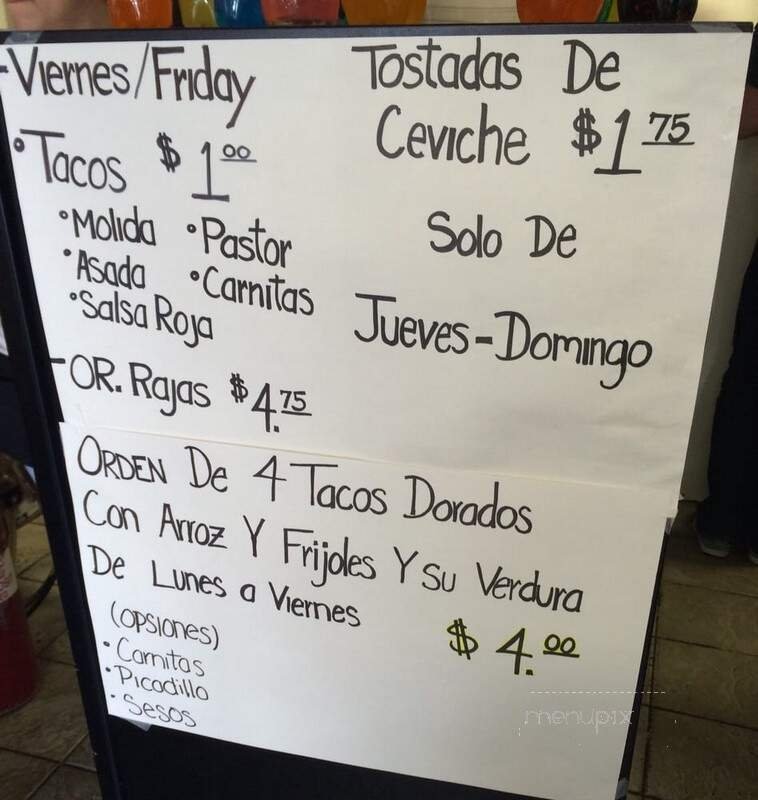 -Viernes/Friday
•Tacos $1.00
•Molida •Pastor
•Asada •Carnitas
•Salsa Roja
-OR. Rajas $4.75
Tostadas De
Ceviche $1.75
Solo De
Jueves-Domingo
ORDEN De 4 Tacos Dorados
Con Arroz Y Frijoles Y su Verdura
De Lunes a Viernes
$4.00
(OPSIONES)
•Carnitas
•Picadillo
•Sesos
menupix